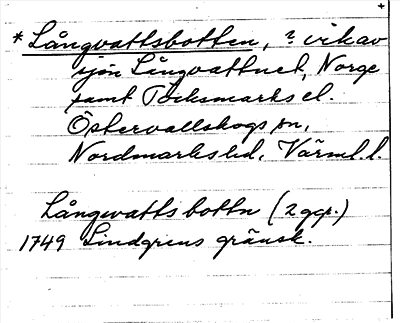 * Långvattsbotten, ? vik av
sjön Långvattnet, Norge
samt Töcksmarks el.
Östervallskogs sn,
Nordmarks hd, Värml. l.
Långvatts bottn (2 ggr.)
1749 Lindgrens gränsk.